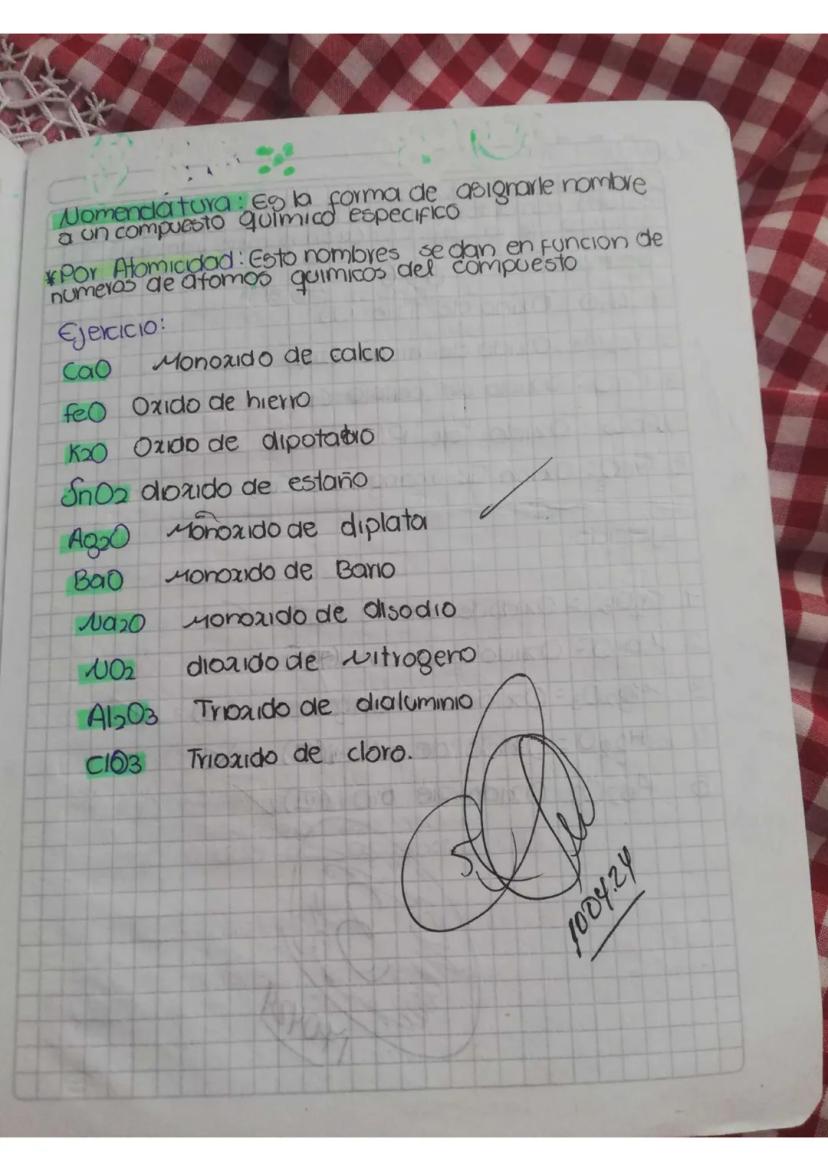 Nomenclatura: Es la forma de asignarle nombre
a un compuesto químico especifico
*Por Atomicidad: Esto nombres se dan en funcion de
numeros de átomos quimicos del compuesto
Ejercicio:
CaO Monoxido de calcio
feO Oxido de hierro
K2O Oxido de
SnO2 dioxido de estaño
Ag2O Monoxido de diplata
BaO Monoxido de Bario
Na2O Monoxido de disodio
NO2 dioxido de Nitrogeno
Al2O3 Trioxido de dialuminio
ClO3 Trioxido de cloro.
100424